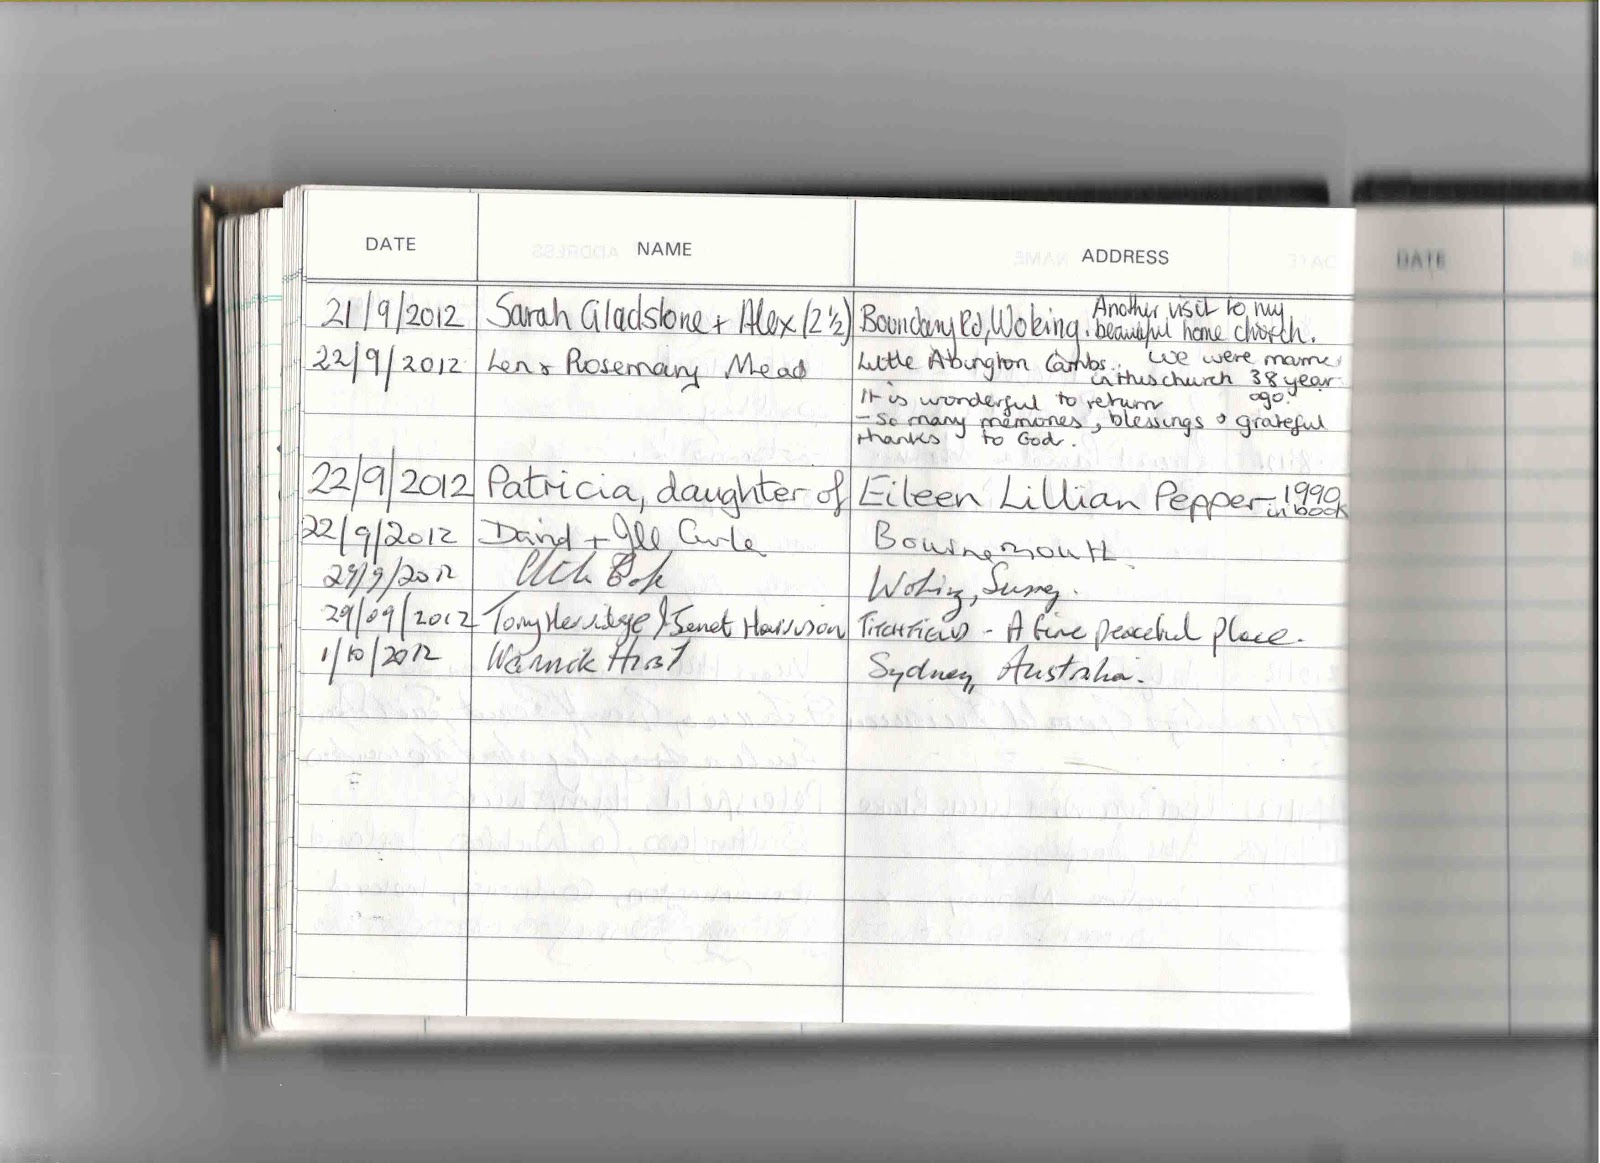 DATE NAME ADDRESS
21/9/2012 Sarah Gladstone + Alex (2½) Boundary Rd, Woking. Another visit to my
beautiful home church.
22/9/2012 Len & Rosemary Mead Little Abington Cambs. We were
in this church 38 year
ago.
It is wonderful to return
- so many memories, blessings & grateful
thanks to God.
22/9/2012 Patricia, daughter of Eileen Lillian Pepper - 1990
in book
22/9/2012 David + Bournemouth
29/9/2012 Woking, Surrey.
29/09/2012 Tony Herridge & Janet Harrison TITCHFIELD - A fine peaceful place.
1/10/2012 Warwick Hirst Sydney, Australia.
DATE